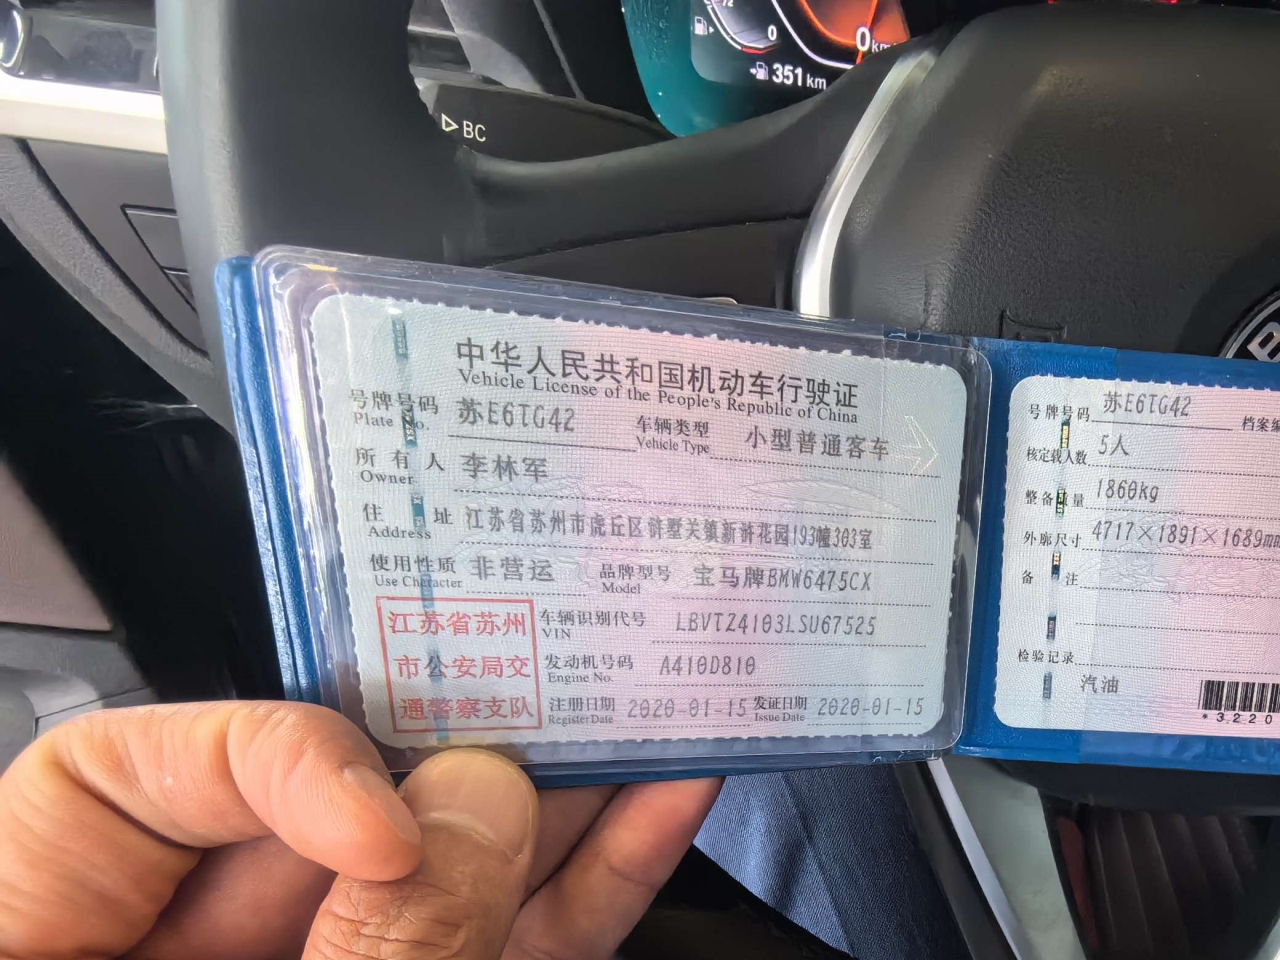 0
0 km
351 km
BC
中华人民共和国机动车行驶证
Vehicle License of the People's Republic of China
号牌号码 苏E6TG42 车辆类型 小型普通客车
Plate No. Vehicle Type
所有人 李林军
Owner
住址 江苏省苏州市虎丘区浒墅关镇新浒花园193幢303室
Address
使用性质 非营运 品牌型号 宝马牌BMW6475CX
Use Character Model
江苏省苏州
市公安局交
通警察支队
车辆识别代号 LBVTZ4103LSU67525
VIN
发动机号码 A410D810
Engine No.
注册日期 2020-01-15 发证日期 2020-01-15
Register Date Issue Date
号牌号码 苏E6TG42 档案编
核定载人数 5人
整备质量 1860kg
外廓尺寸 4717×1891×1689mm
备注
检验记录
汽油
*3220